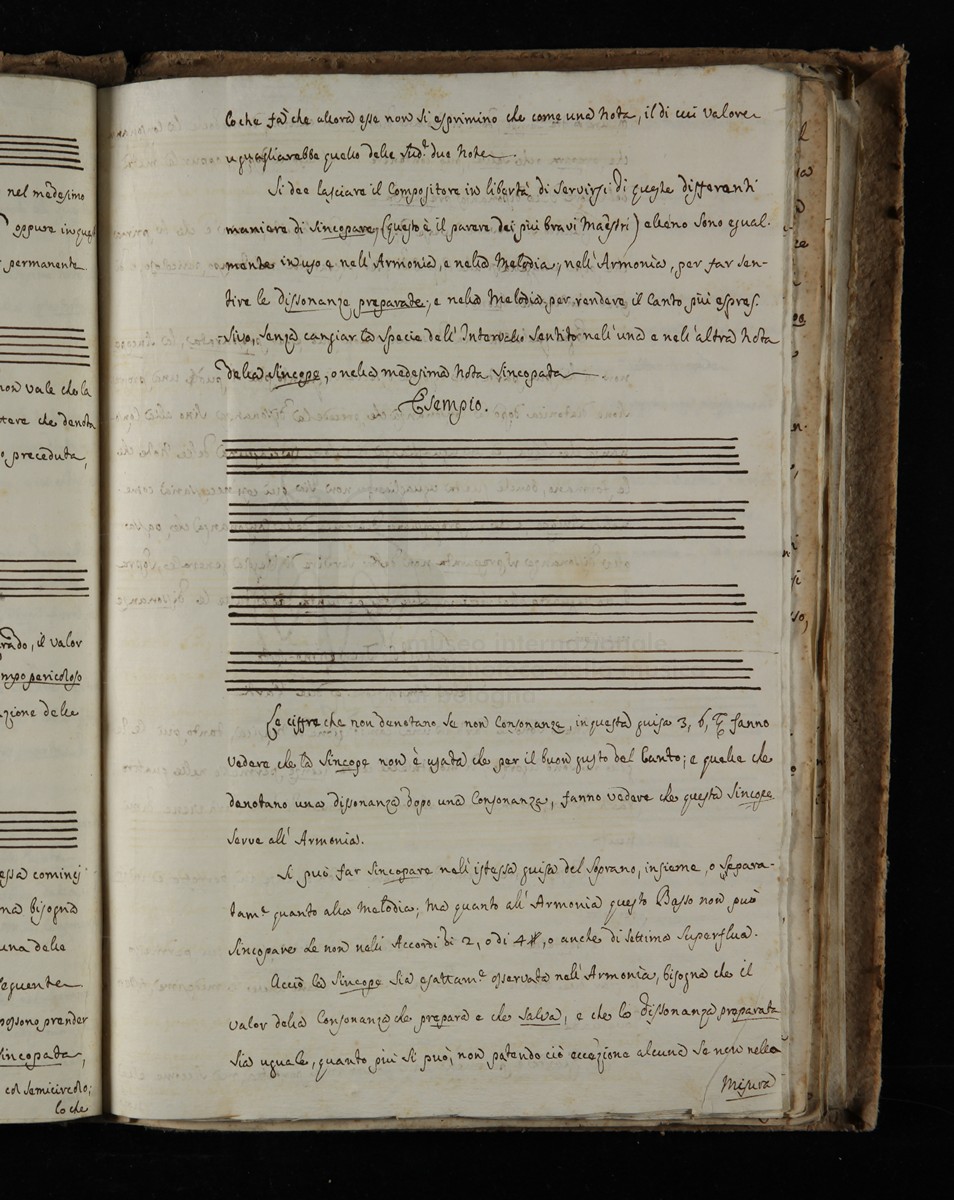 nel medesimo
oppure in quest
permanente
non vale che la
tere che denota
o preceduta,
rado, il valor
mpo pericoloso
zione delle
essa cominci
na bisogna
una delle
seguente
possono prender
sincopata,
col semicircolo;
lo che
lo che fà che allora esse non si esprimino che come una nota, il di cui valore
uguagliarebbe quello delle sud.e due note.
Si dee lasciare il Compositore in libertà di servirsi di queste differenti
maniere di sincopare, (questo è il parere dei più bravi Maestri) elleno sono egual-
mente in uso e nell'Armonia, e nella Melodia; nell'Armonia, per far sen-
tire le dissonanze preparate, e nella Melodia, per rendere il Canto più espres-
sivo, senza cangiar la specie dell'Intervallo sentito nell'una e nell'altra nota
della sincope, o nella medesima nota sincopata.
Esempio.
Le cifre che non denotano se non Consonanze, in questa guisa 3, 6, fanno
vedere che la sincope non è usata che per il buon gusto del Canto; e quelle che
denotano una dissonanza dopo una Consonanza, fanno vedere che questa sincope
serve all'Armonia.
Si può far sincopare nell'istessa guisa del Soprano, insieme, o separa-
tam.e quanto alla Melodia; ma quanto all'Armonia questo Basso non può
sincopare se non nelli Accordi di 2, o di 4#, o anche di settima superflua.
Acciò la sincope sia esattam.e osservata nell'Armonia, bisogna che il
valor della Consonanza che prepara e che salva, e che la dissonanza preparata
sia uguale, quanto più si può, non patendo ciò eccezione alcuna se non nella
Misura